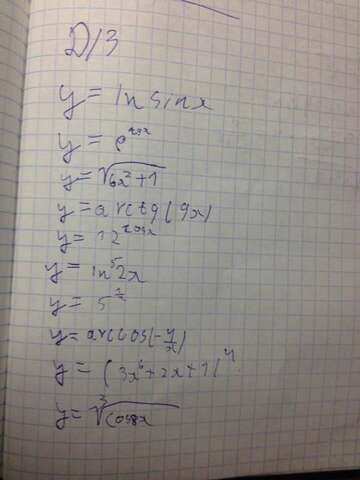 Д/З
y = ln sin x
y = e^cos x
y = √(6x²+1)
y = arctg(9x)
y = 12^cos x
y = ln⁵2x
y = arccos(-
y = (3x⁶+2x+1)⁴
y = ∛cos8x